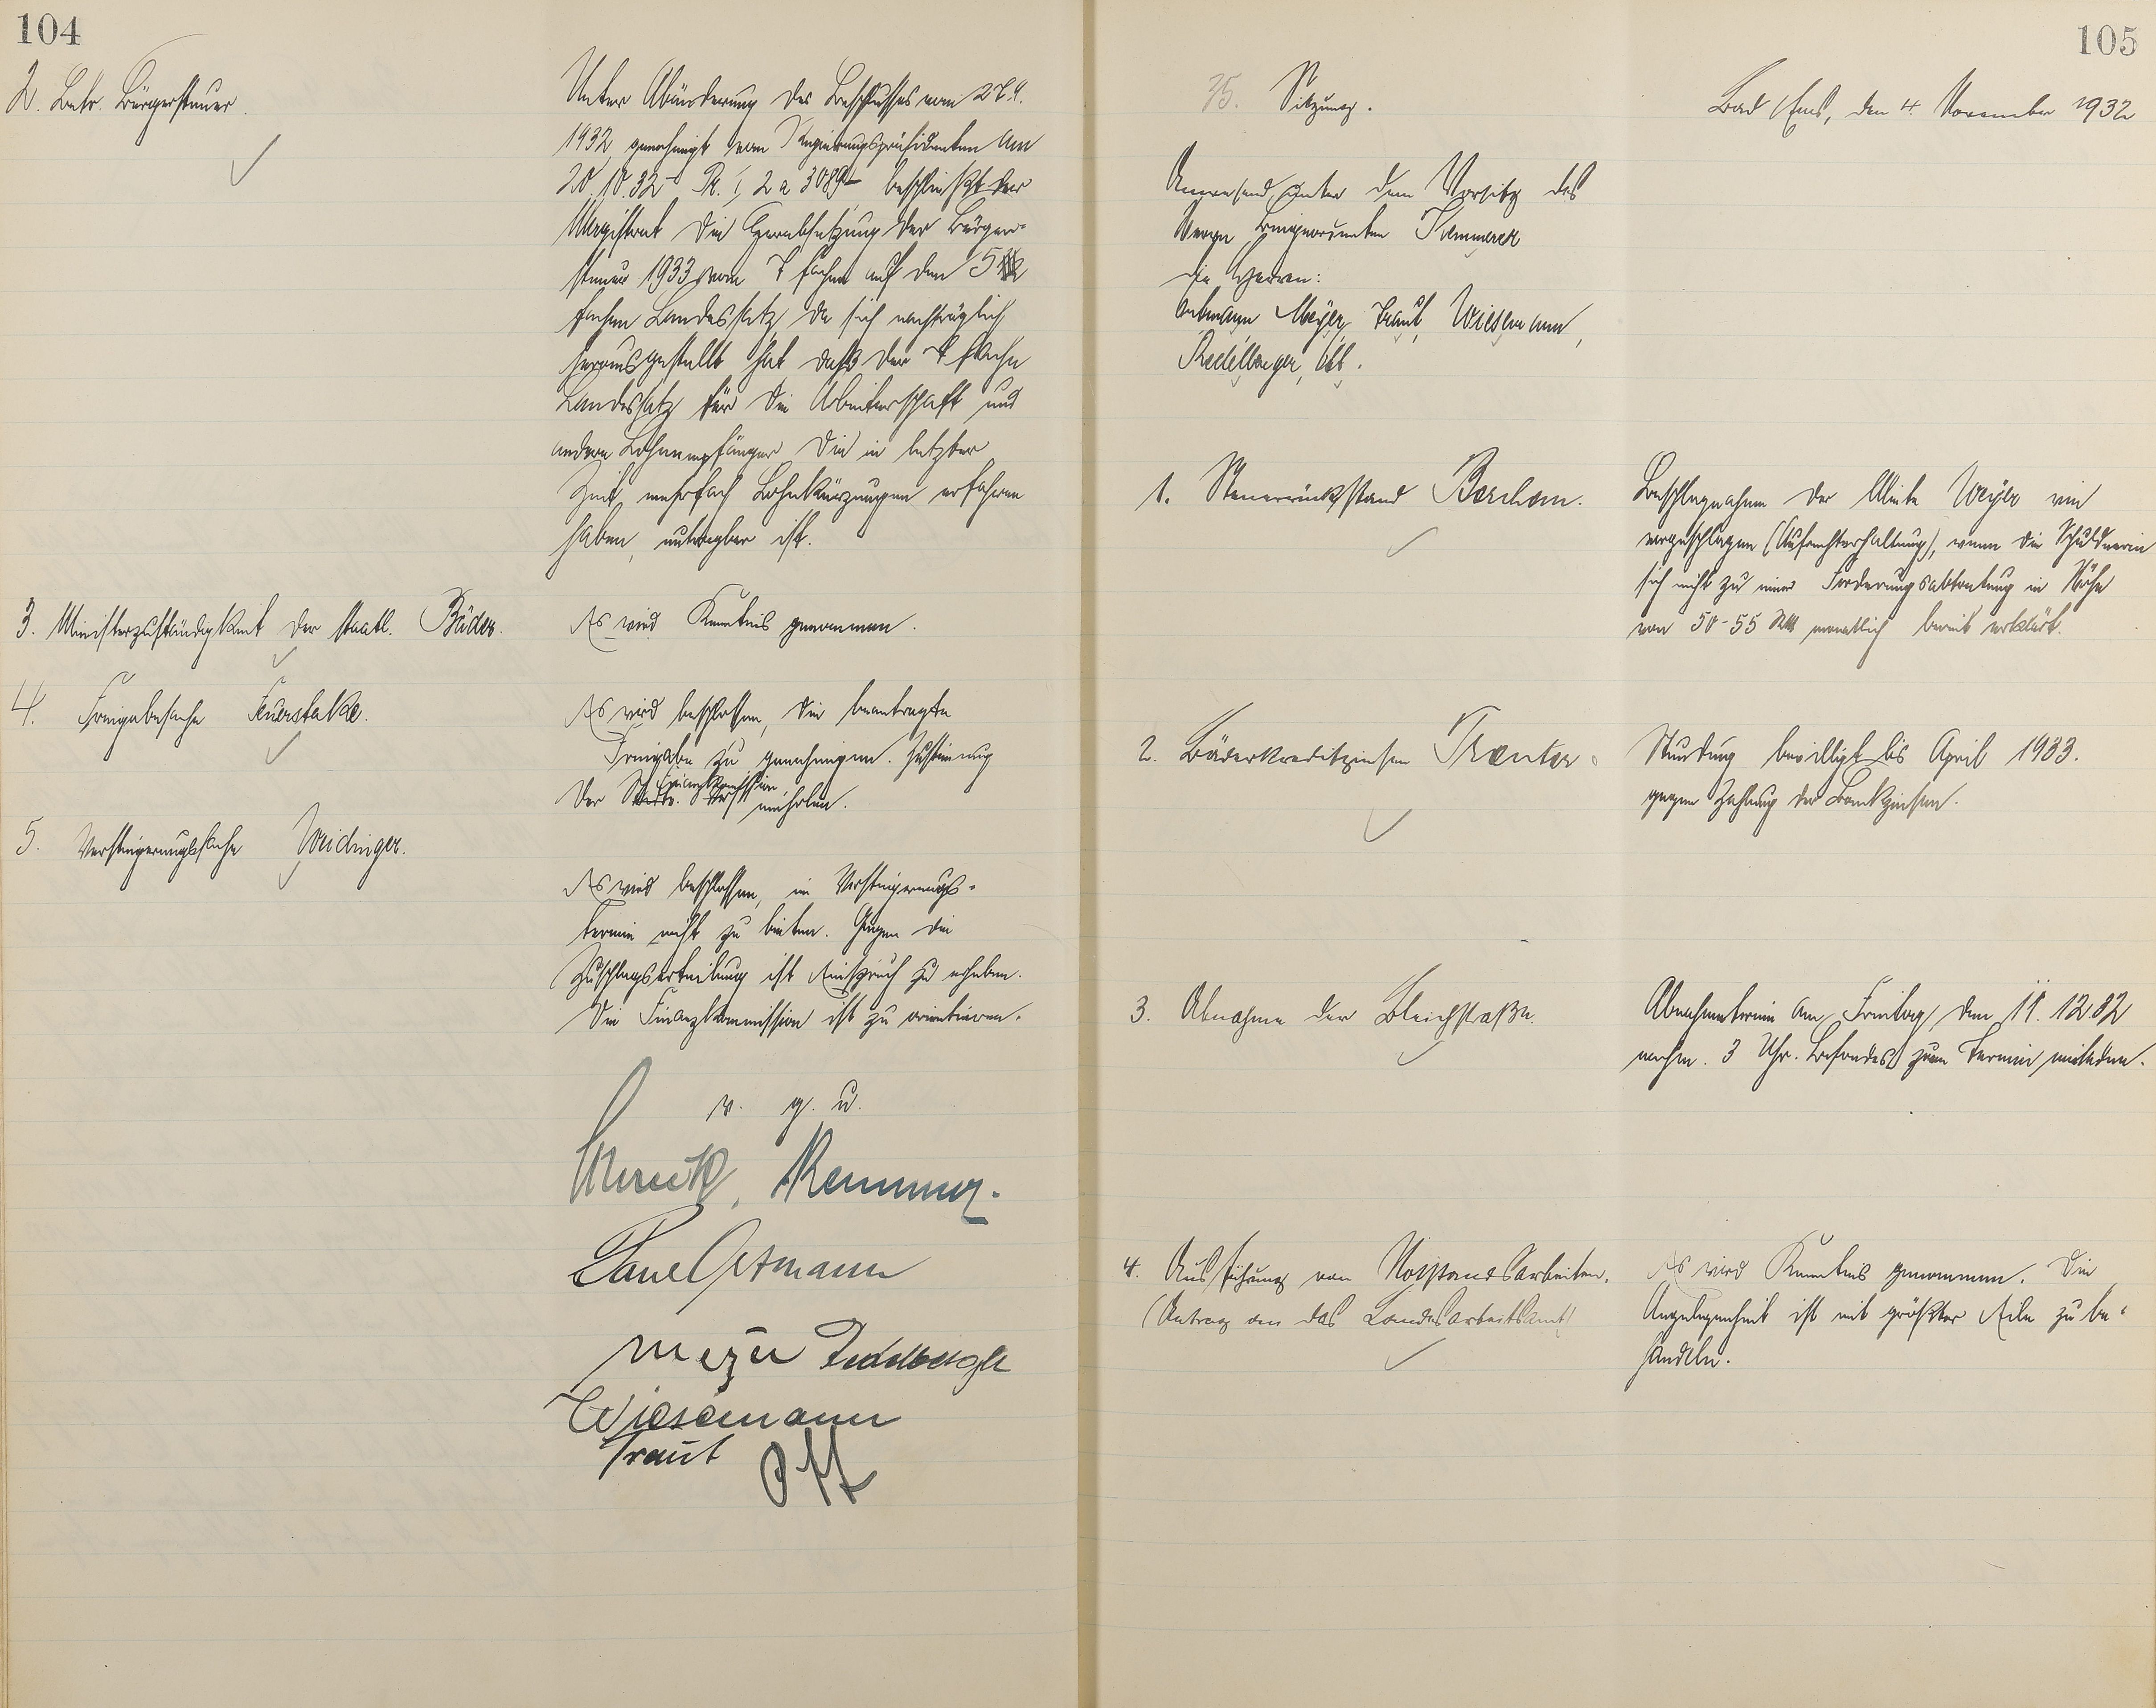 104
2. Betr. Bürgersteuer.
Unter Abänderung des Beschlusses vom 27.9.
1932, genehmigt vom Regierungspräsidenten am
20.10.32 Pr. I, 2 a 3089 beschließt der
Magistrat die Herabsetzung der Bürger-
steuer 1933 vom 7 fachen auf den 5
fachen Landessatz, da sich nachträglich
herausgestellt hat, daß der 7 fache
Landessatz für die Arbeiterschaft und
andere Lohnempfänger die in letzter
Zeit mehrfach Lohnkürzungen erfahren
haben, untragbar ist.
3. Ministerzuständigkeit der staatl. Bäder.
Es wird Kenntnis genommen.
4. Freigabesache Feuerstake.
Es wird beschlossen, die beantragte
Freigabe zu genehmigen. Zustimmung
der Finanzkommission einholen.
5. Versteigerungssache Weidinger.
Es wird beschlossen, im Versteigerungs-
termin nicht zu bieten. Gegen die
Zuschlagserteilung ist Einspruch zu erheben.
Die Finanzkommission ist zu orientieren.
v. g. u.
Kemmer.
Ortmann
Meyer Riedelberger
Wiesemann
Traut Ott
105
35. Sitzung.
Bad Ems, den 4. November 1932
Anwesend unter dem Vorsitz des
Herrn Beigeordneten Kemmerer
die Herren:
Ortmann, Meyer, Traut, Wiesemann,
Riedelberger, Ott.
1. Steuerrückstand Berchem.
Beschlagnahme der Miete Weyer wie
vorgeschlagen (Aufrechterhaltung), wenn die Schuldnerin
sich nicht zu einer Forderungsabtretung in Höhe
von 50-55 RM monatlich bereit erklärt.
2. Bäderkreditzinsen Trenter.
Stundung bewilligt bis April 1933.
gegen Zahlung der Bankzinsen.
3. Abnahme der Bleichstraße.
Abnahmetermin am Freitag, den 11. 12.32
nachm. 3 Uhr. zum Termin einladen.
4. Ausführung von Notstandsarbeiten.
(Antrag an das Landesarbeitsamt)
Es wird Kenntnis genommen. Die
Angelegenheit ist mit größter Eile zu be-
handeln.